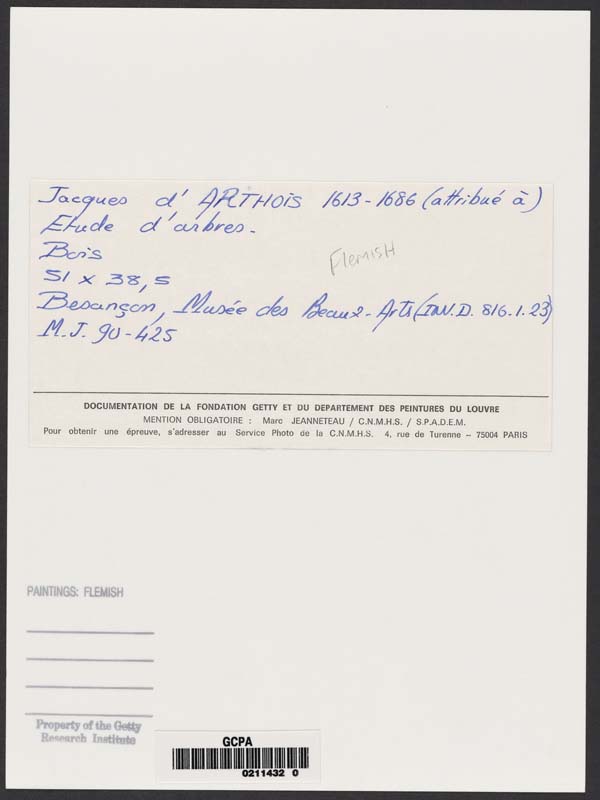 Jacques d'ARTHOIS 1613-1686 (attribué à)
Etude d'arbres.
Bois
Flemish
51 x 38,5
Besançon, Musée des Beaux-Arts (INV.D. 816.1.23)
M.J. 90-425
DOCUMENTATION DE LA FONDATION GETTY ET DU DEPARTEMENT DES PEINTURES DU LOUVRE
MENTION OBLIGATOIRE : Marc JEANNETEAU / C.N.M.H.S. / S.P.A.D.E.M.
Pour obtenir une épreuve, s'adresser au Service Photo de la C.N.M.H.S. 4, rue de Turenne – 75004 PARIS
PAINTINGS: FLEMISH
Property of the Getty
Research Institute
GCPA
0211432 0